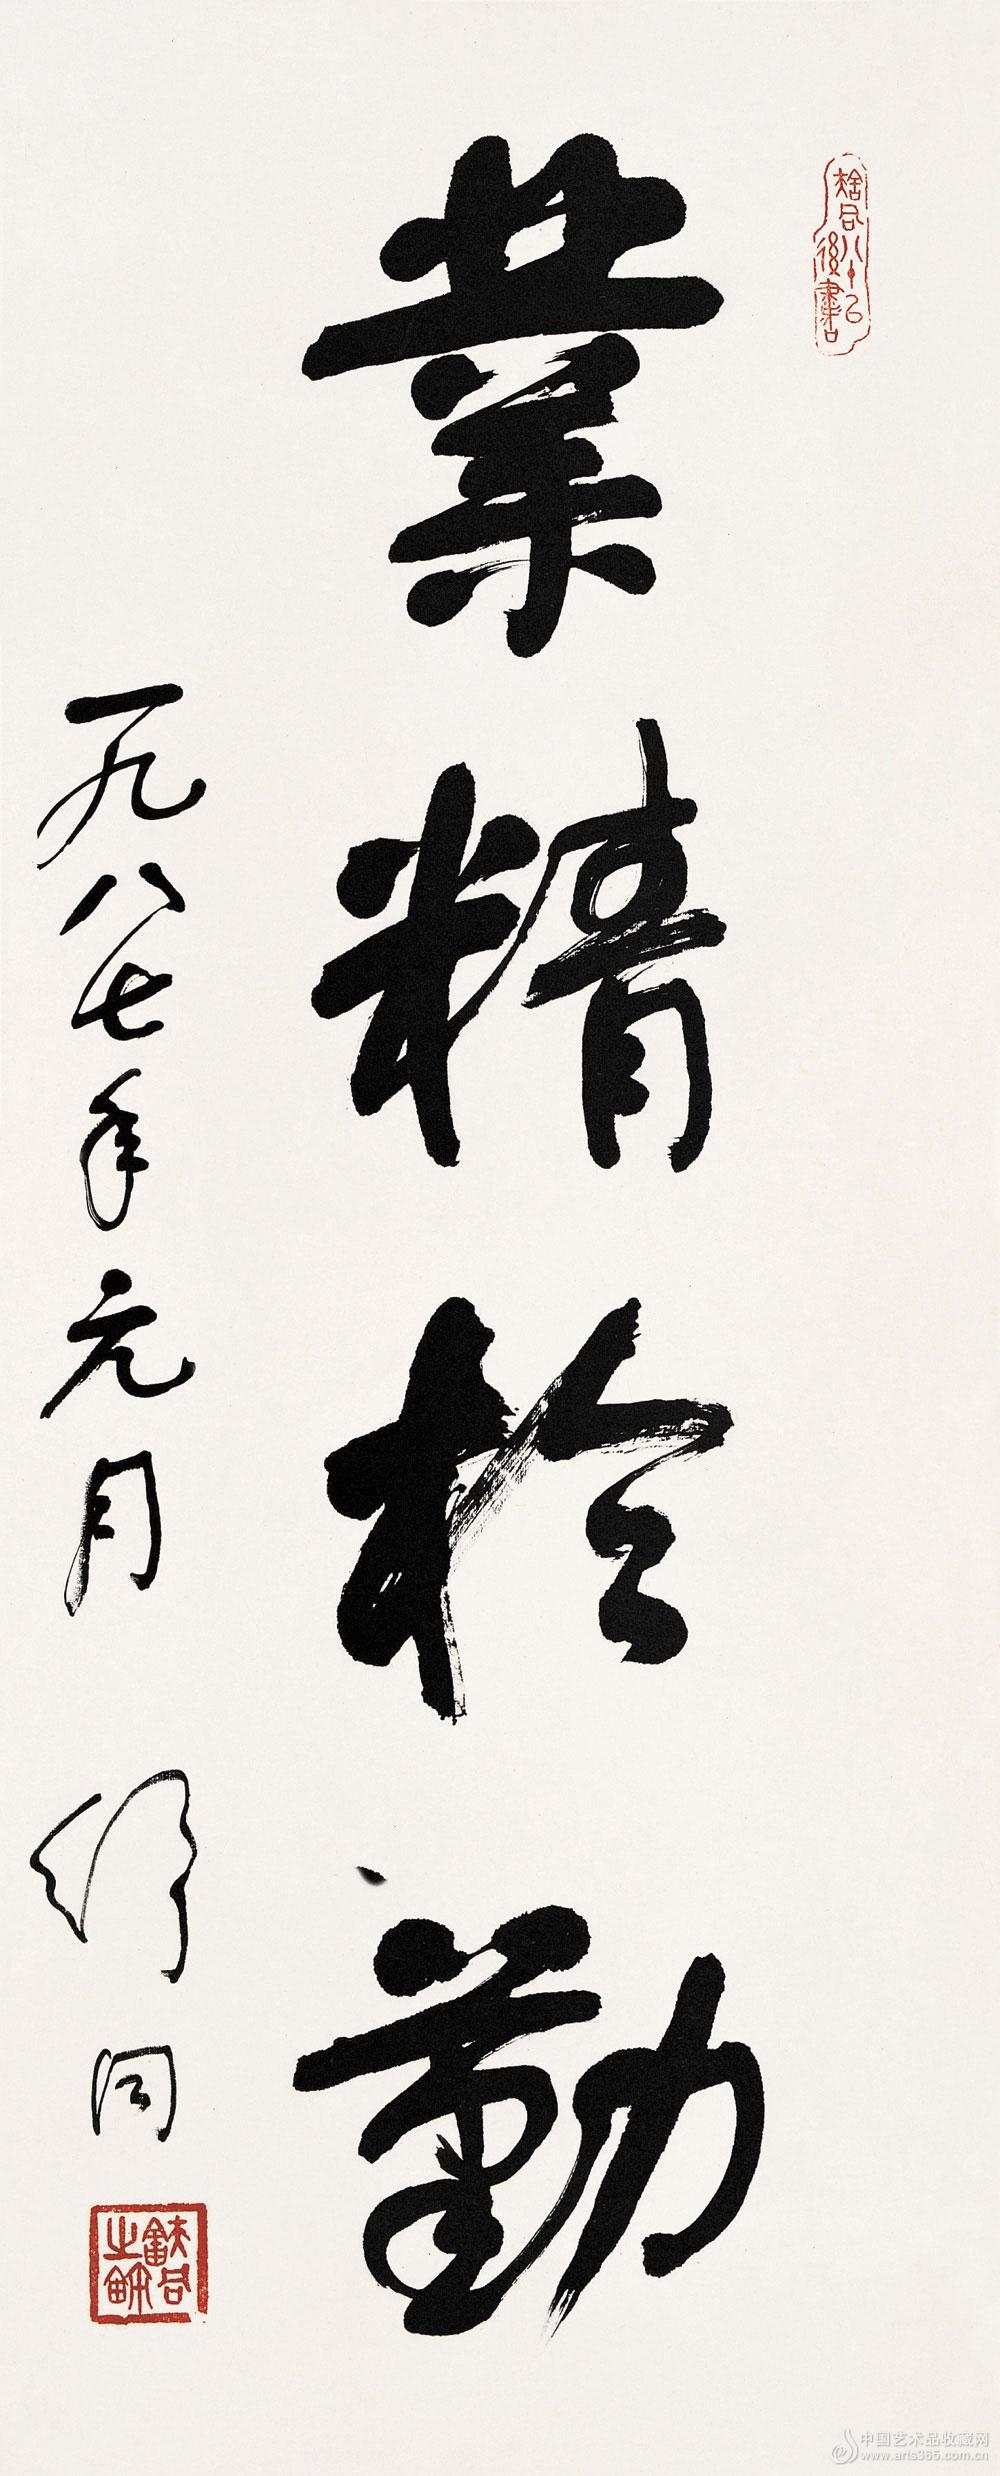 業精於勤
一九八七年元月 舒同
舒同八十己後書
舒同之鉨
中国艺术品收藏网
www.arts365.com.cn